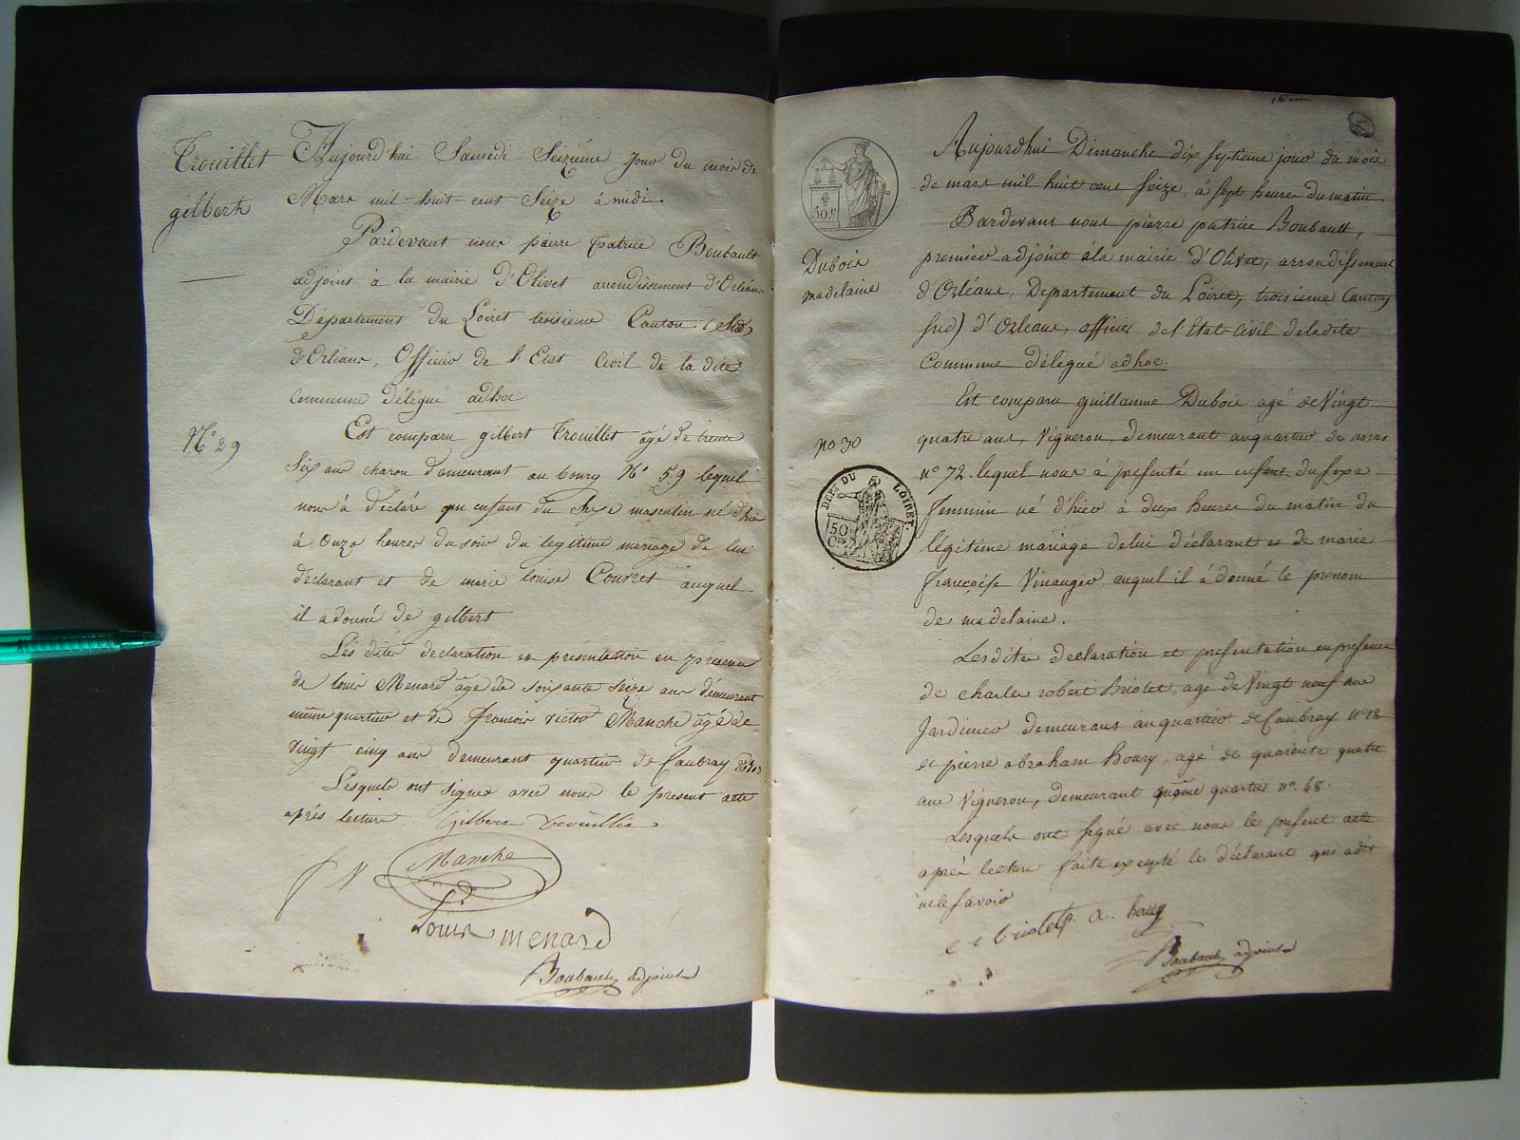 Trouillet
gilbert
N° 29
Aujourd'hui Samedi Seizieme jour du mois de
Mars mil-huit-cent Seize à midi
Pardevant nous pierre patrice Boubault
adjoint à la mairie d'Olivet arrondissement d'Orléans
Departement du Loiret troisieme Canton (Sud)
d'Orléans, Officier de l'Etat Civil de la dite
Commune délégué adhoc
Est comparu gilbert Trouillet âgé de trente
Six ans charon demeurant au bourg N° 59 lequel
nous à déclaré un enfant du Sexe masculin né d'hier
à Onze heures du soir du legitime mariage de lui
declarant et de marie louise Couvret auquel
il a donné de gilbert
Les dites declaration et presentation en presence
de louis Menard âgé de soixante seize ans demeurant
même quartier et de francois victor Manche âgé de
vingt cinq ans demeurant quartier de Caubray
Lesquels ont signes avec nous le present acte
aprés lecture Gilbert Trouillet
Manche
Louis menard
Boubault adjoint
50
Dubois
madelaine
no 30
DEPT DU LOIRET.
50
Aujourdhui Dimanche dix septieme jour du mois
de mars mil huit cent Seize, à sept heures du matin
Pardevant nous pierre patrice Boubault,
premier adjoint àla mairie d'Olivet, arrondissement
d'Orléans, Departement du Loiret, troisieme Canton
Sud) d'Orléans, officier del'Etat-Civil deladite
Commune délégué adhoc.
Est comparu guillaume Dubois agé deVingt
quatre ans, Vigneron, demeurant auquartier de
n° 72. lequel nous à présenté un enfant du sexe
femınin né d'hier à deux heures du matin du
légitime mariage delui déclarant et de marie
françoise Vinauger auquel il à donné le prenom
de madelaine.
Lesdites declaration et présentation en présence
de charles robert briolet, agé de Vingt neuf ans
Jardinier demeurans auquartier deCaubray n° 18
et pierre abraham Boury, agé de quarente quatre
ans Vigneron, demeurant même quartier n°. 68.
Lesquels ont signé avec nous le présent acte
aprés lecture faite excepté le déclarant qui a dit
nele savoir
briolet A. boury
Boubault adjoint